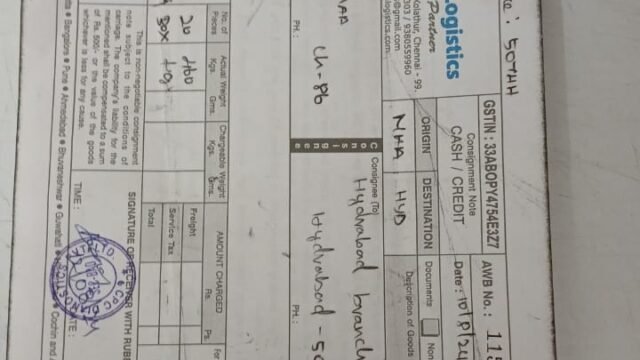 : 50THH
Logistics
Partner
Kolathur, Chennai - 99.
303 / 9380559960
@gmail.com
logistics.com
GSTIN : 33ABOPY4754E3Z7
Consignment Note
CASH / CREDIT
AWB No. : 115
Date : 10/8/24
ORIGIN
DESTINATION
MAA
HYD
Documents
Non
Description of Goods
MAA
Ch-86
PH. :
Consignee
Consignee (To)
Hydrabad branch
Hydrabad - 50
PH. :
No. of Places
Actual Weight
Kgs. Gms.
Chargeable Weight
Kgs. Gms.
AMOUNT CHARGED
Rs. Ps.
For
20
BOX
460
kgs
Freight
Service Tax
Total
This is non-negotiable consignment
note subject to the conditions of
carriage. The company's liability for the
mentioned shall be compensated to a sum
of Rs. 500/- or the value of the goods
whichever is less for any cause.
SIGNATURE OF RECEIVER WITH RUBB
TIME :
DATE :
Bangalore Pune Ahmedabad Bhuvaneshwar Guwahati
Cochin and